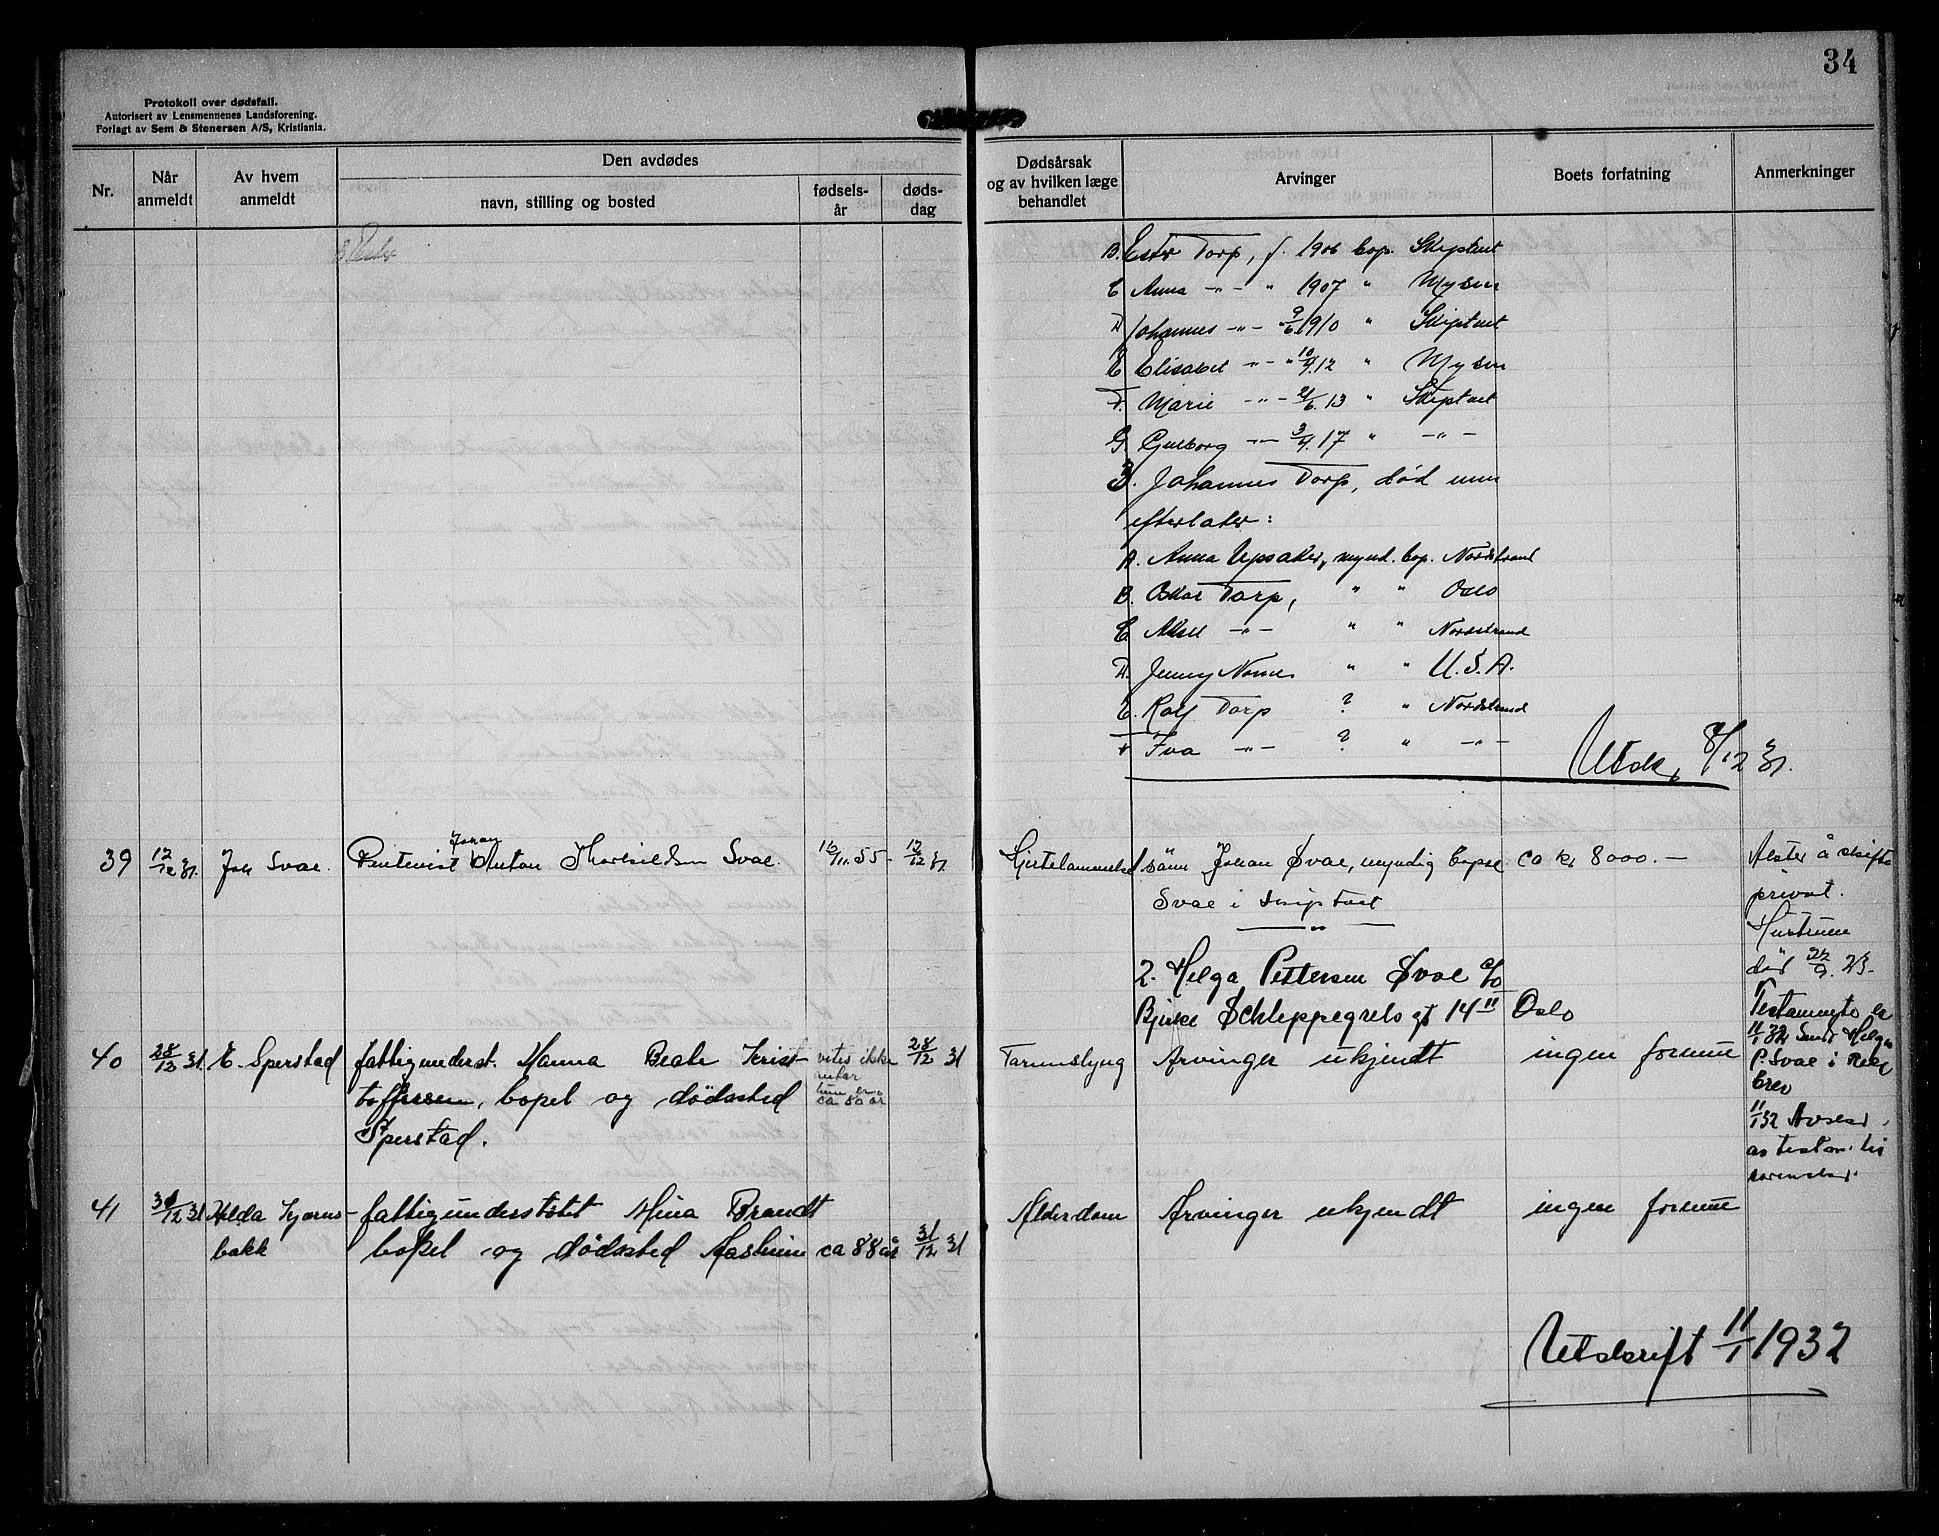 34
Protokoll over dødsfall.
Autorisert av Lensmennenes Landsforening.
Forlagt av Sem & Stenersen A/S, Kristiania.
Nr.
Når anmeldt
Av hvem anmeldt
Den avdødes
navn, stilling og bosted
fødsels-år
døds-dag
Dødsårsak og av hvilken læge behandlet
Arvinger
Boets forfatning
Anmerkninger
B. Ester Torp, f. 1906 bop. Skiptvet
C Anna -"- " 1907 " Mysen
D Johannes -"- 9/6 1910 " Skiptvet
E Elisabet -"- " 10/4 12 " Mysen
F. Marie -"- 21/6. 13 " Skiptvet
G. Gulborg -"- 3/4. 17 " -"-
3. Johannes Torp, død men
efterlater:
A. Anna Upsaker, mynd. bop. Nordstrand
B. Oskar Torp, " " Oslo
C. Aksel -"- " " Nordstrand
D. Jenny Nomes " " U.S.A.
E. Rolf Torp ? " Nordstrand
F Eva -"- ? " -"-
Utsk, 8/12 31.
39 12/12 31. Joh Svae. Rentenist Johan Anton Thorkildsen Svae. 16/11. 55- 12/12 31. Hjertelammelse sønn Johan Svae, myndig bopæl ca kr 8000.—
Svae i Skiptvet
-"-
2. Helga Pettersen Svae c/o
Bjerke Schleppegrels gt 14 II Oslo
Akter å skifte
privat.
Hustruen
død 22/9. 23-
11/1 32 Sendt Helga
P. Svae i
brev
11/1 32
40 28/12 31. E. Sperstad fattigunderst. Manna Beate Krist- vites ikke 28/12 31 Tarmslyng Arvinger ukjendt ingen formue
toffersen, bopel og dödssted
antar hun er ca 80 år
Sperstad.
41 31/12 31 Hilda Kjærns- fattigunderstötet Mina Brandt Alderdom Arvinger ukjendt ingen formue
bakk bopel og dödssted Aasheim ca 88 år 31/12 31
Utskrift 11/1 1932